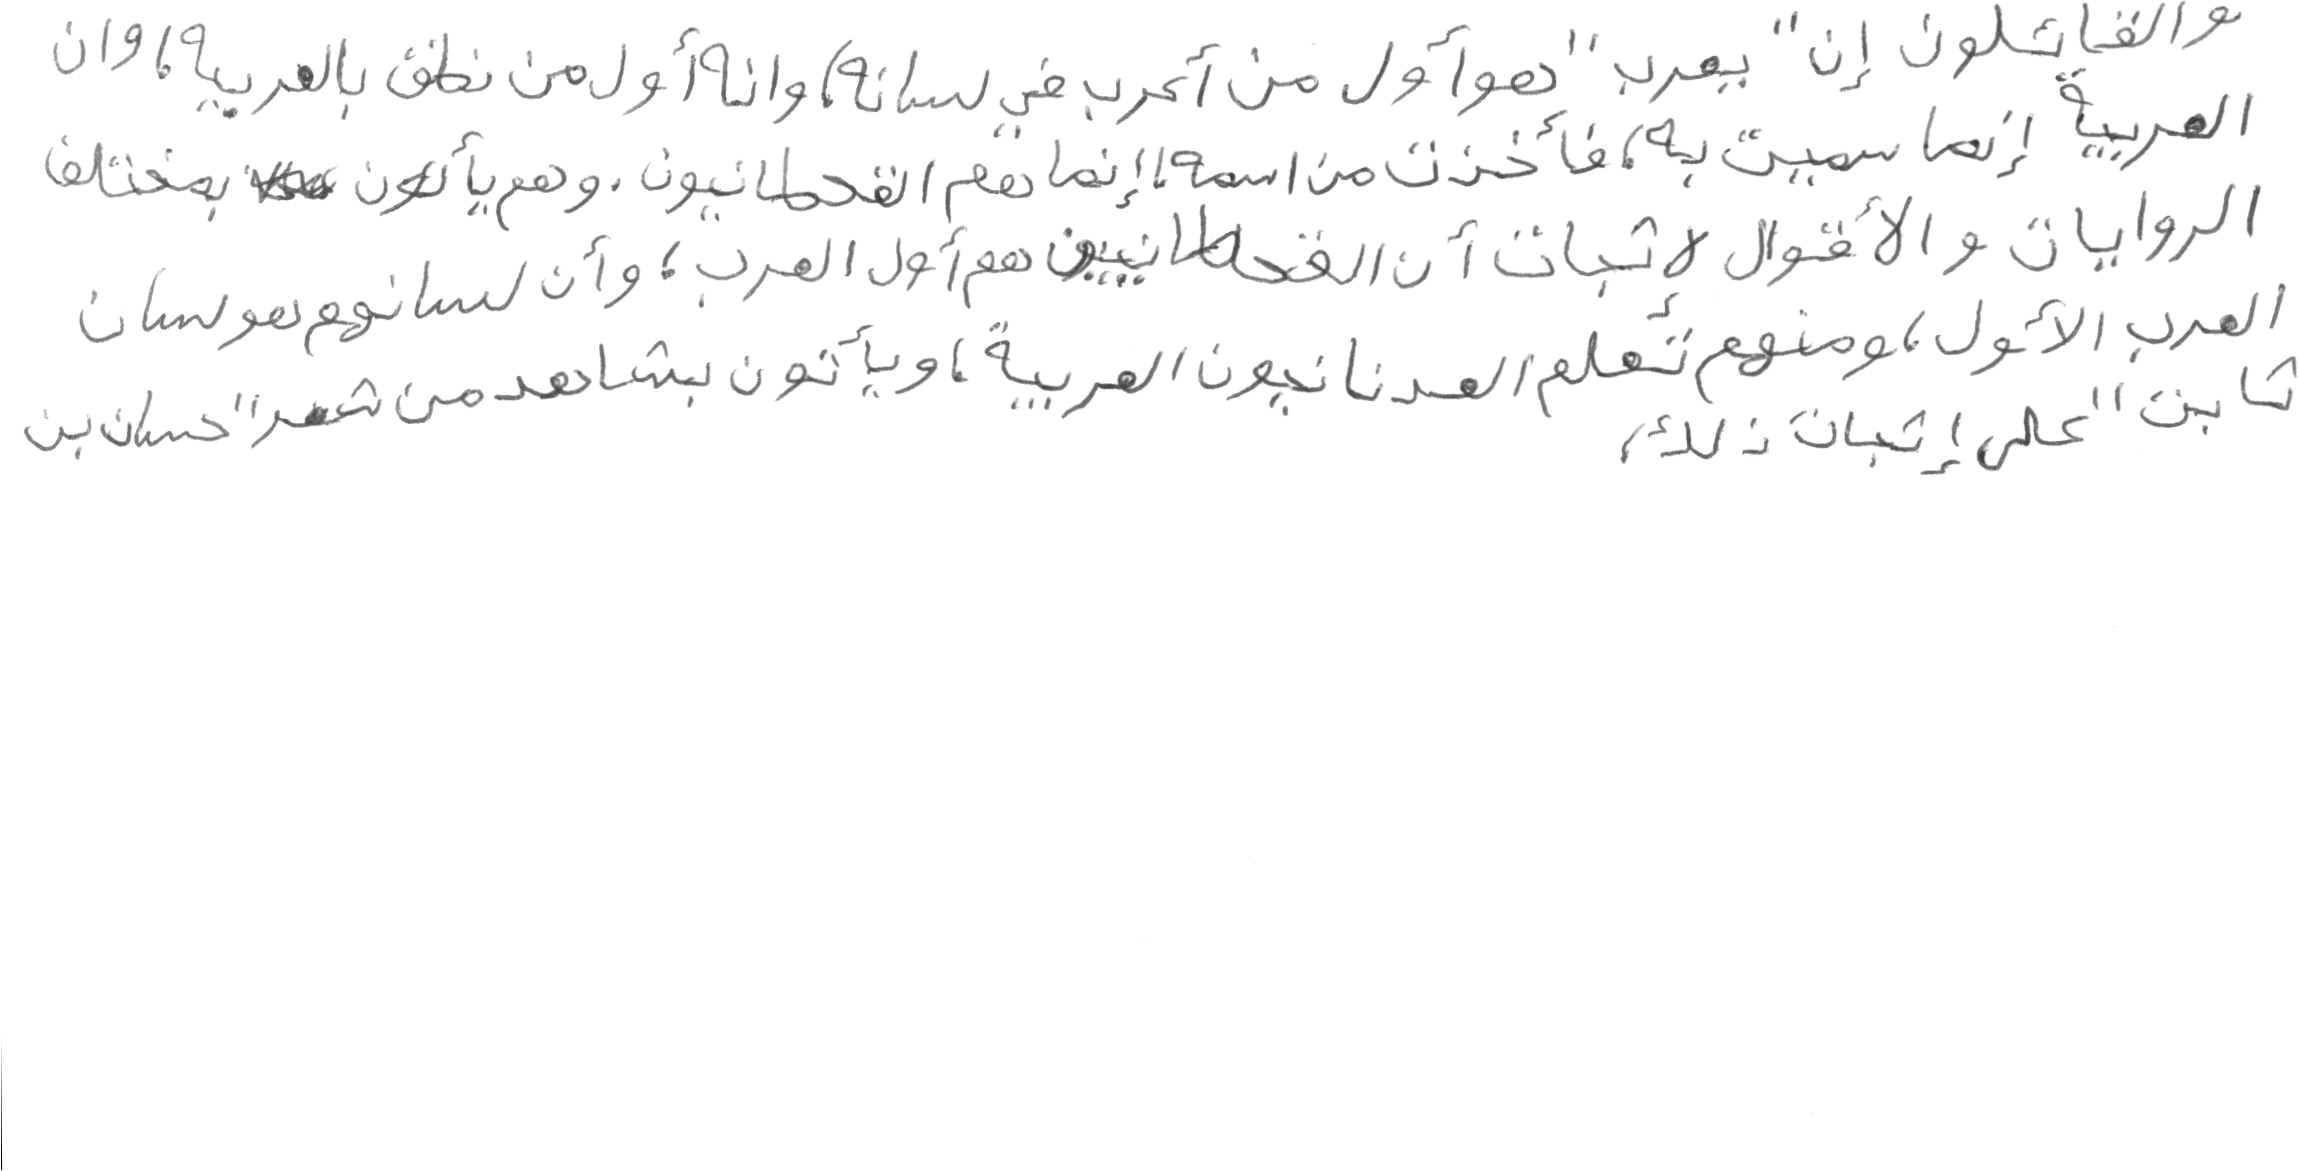 والقائلون إن "يعرب" هو أول من أعرب في لسانه، وانه أول من نطق بالعربية، وان
العربية إنما سميت به، فأخذت من اسمه، إنما هم القحطانيون. وهم يأتون بمختلف
الروايات والأقوال لاثبات أن القحطانيين هم أول العرب، وأن لسانهم هو لسان
العرب الأول، ومنهم تعلم العدنانيون العربية، ويأتون بشاهد من شعر "حسان بن
ثابت" على إثبات ذلك،